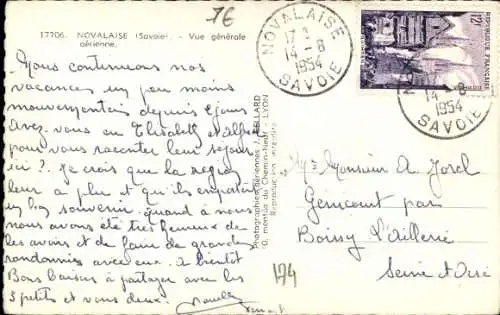 17706. NOVALAISE (Savoie). - Vue générale
aérienne.
Nous continuons nos
vacances un peu moins
mouvementées depuis 2 jours
Avez vous eu Elisabeth et
pour vous raconter leur séjour
ici ? Je crois que la région
leur a plu et qu'ils emportent
un bon souvenir. Quand à nous
nous avons été très heureux de
les avoir et de faire de grandes
randonnées avec eux. A bientôt
Bons baisers à partager avec les
3 petits et vous deux.
Photographies aériennes J. CELLARD
montée du Chemin-Neuf - LYON
Reproduction interdite
76
NOVALAISE
14-8
1954
SAVOIE
12F
REPUBLIQUE FRANÇAISE
POSTES
14-8
1954
SAVOIE
Monsieur A
par
Boissy L'Aillerie
Seine et Oise
194